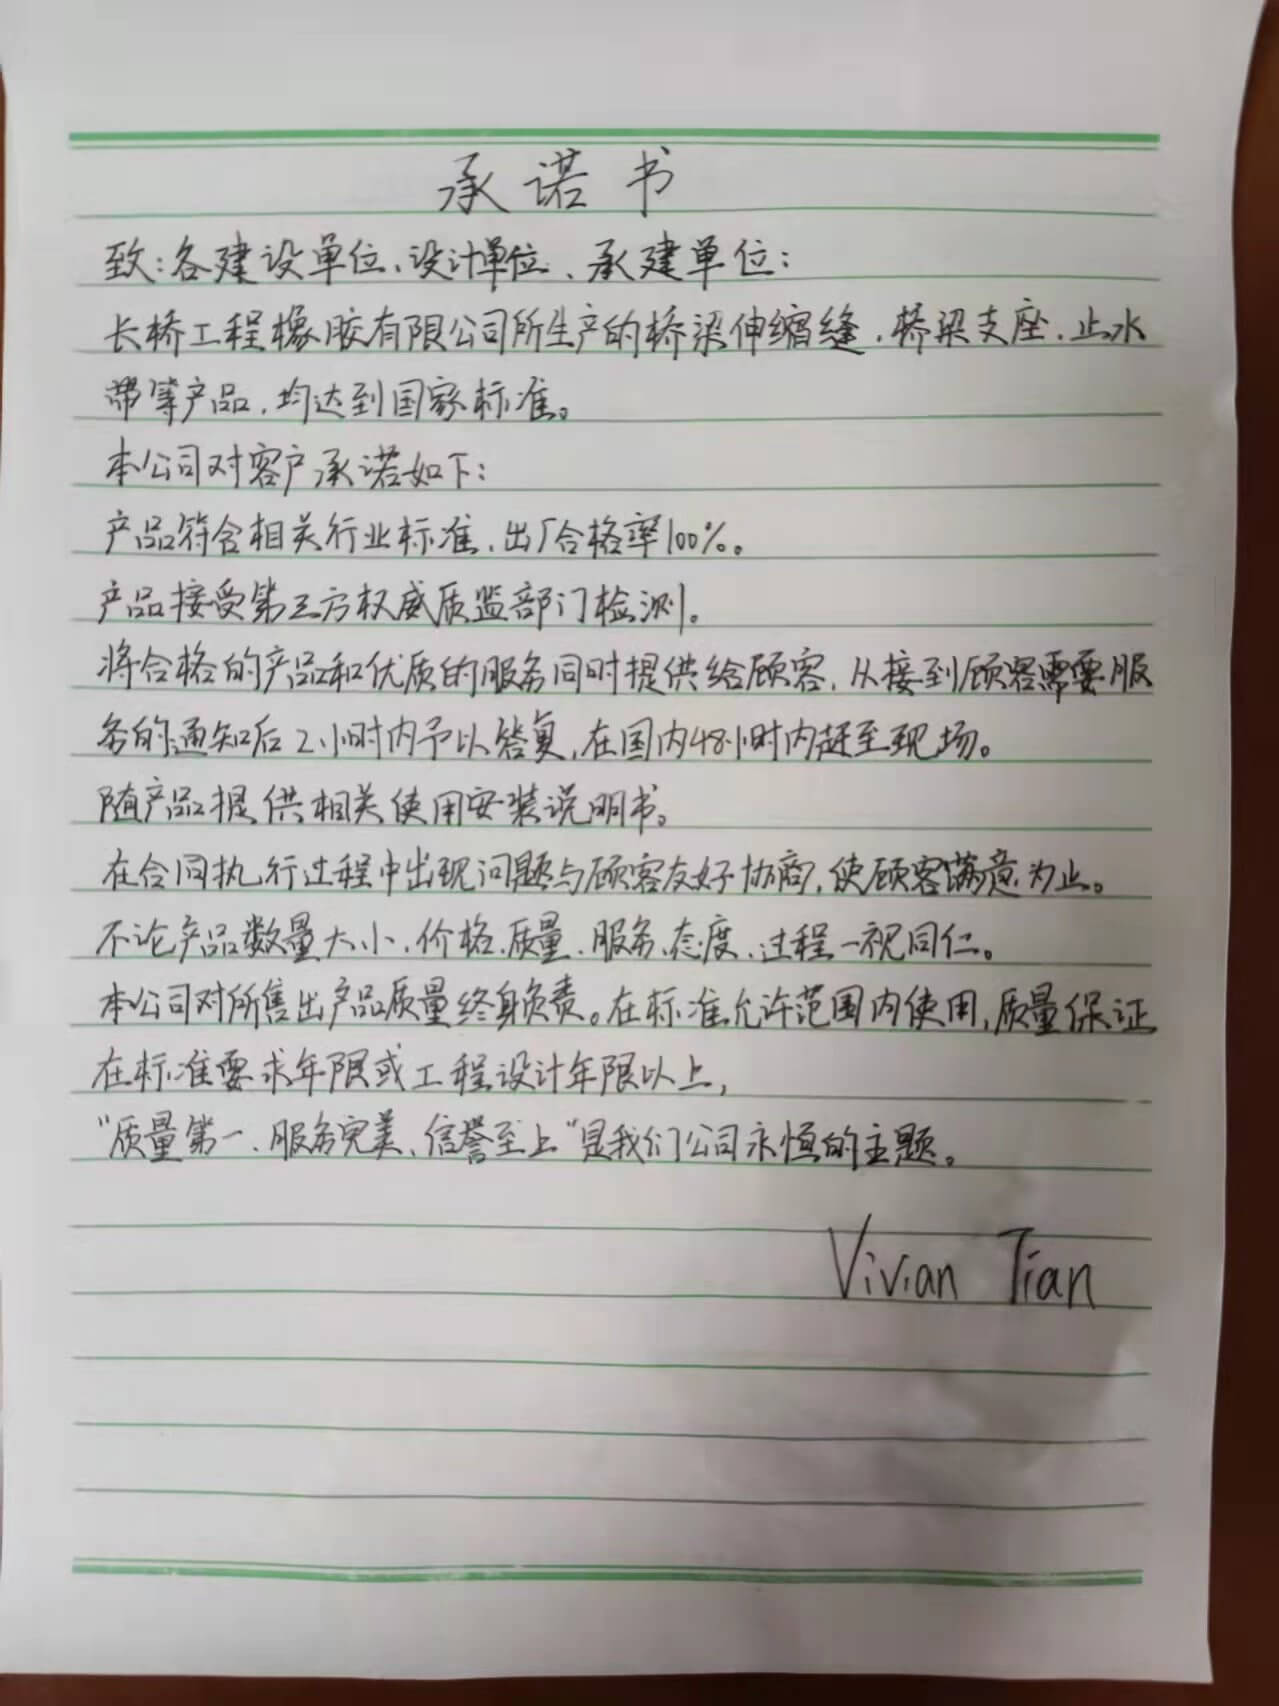 承诺书
致:各建设单位、设计单位、承建单位:
长桥工程橡胶有限公司所生产的桥梁伸缩缝、桥梁支座、止水
带等产品,均达到国家标准。
本公司对客户承诺如下:
产品符合相关行业标准,出厂合格率100%。
产品接受第三方权威质监部门检测。
将合格的产品和优质的服务同时提供给顾客,从接到顾客需要服
务的通知后2小时内予以答复,在国内48小时内赶至现场。
随产品提供相关使用安装说明书。
在合同执行过程中出现问题与顾客友好协商,使顾客满意为止。
不论产品数量大小、价格、质量、服务、态度、过程一视同仁。
本公司对所售出产品质量终身负责。在标准允许范围内使用,质量保证
在标准要求年限或工程设计年限以上,
"质量第一、服务完美、信誉至上"是我们公司永恒的主题。
Vivian Tian